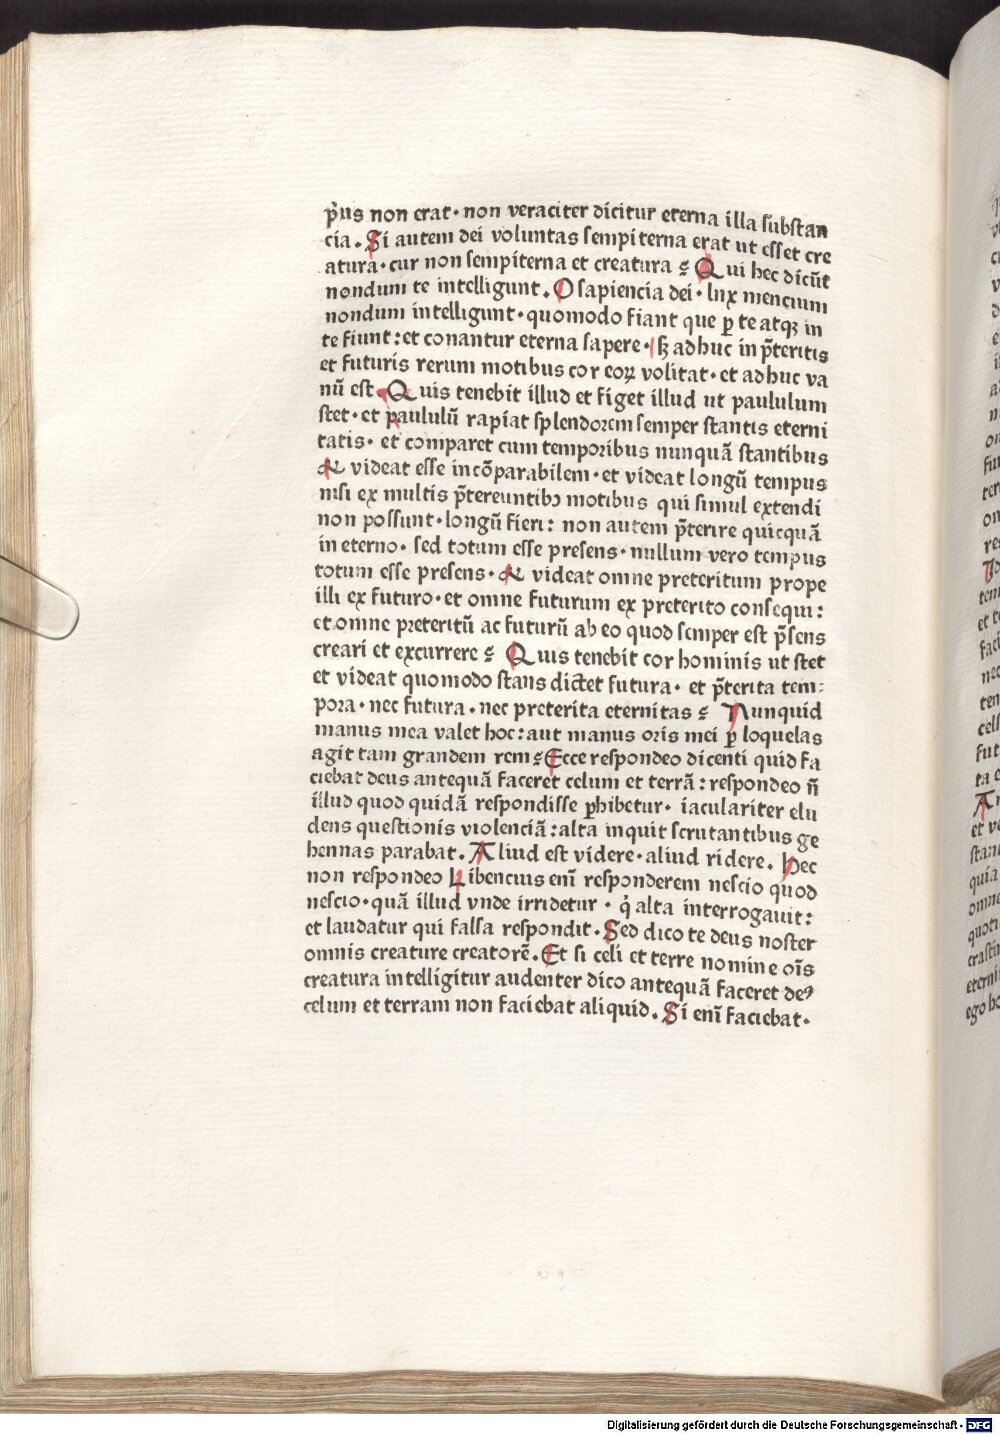 p̄us non erat· non veraciter dicitur eterna illa ſubſtan
cia. Si autem dei voluntas ſempiterna erat ut eſſet cre
atura· cur non ſempiterna et creatura ? Qui hec dicūt
nondum te intelligunt. O ſapiencia dei· lux mencium
nondum intelligunt· quomodo fiant que ꝑ te atqꝫ in
te fiunt: et conantur eterna ſapere· ſꝫ adhuc in p̄teritis
et futuris rerum motibus cor eoꝝ volitat· et adhuc va
nū eſt. Quis tenebit illud et figet illud ut paululum
ſtet· et paululū rapiat ſplendorem ſemper ſtantis eterni
tatis· et comparet cum temporibus nunquā ſtantibus
& videat eſſe incōparabilem· et videat longū tempus
niſi ex multis p̄tereuntibꝫ motibus qui ſimul extendi
non poſſunt· longū fieri: non autem p̄terire quicquā
in eterno· sed totum eſſe preſens· nullum vero tempus
totum eſſe preſens· & videat omne preteritum prope
illi ex futuro· et omne futurum ex preterito conſequi:
et omne preteritū ac futurū ab eo quod ſemper eſt p̄ſens
creari et excurrere ? Quis tenebit cor hominis ut ſtet
et videat quomodo ſtans dictet futura· et p̄terita tem:
pora· nec futura· nec preterita eternitas ? Nunquid
manus mea valet hoc: aut manus oris mei ꝑ loquelas
agit tam grandem rem ? Ecce reſpondeo dicenti quid fa
ciebat deus antequā faceret celum et terrā: reſpondeo n̄
illud quod quidā reſpondiſſe ꝑhibetur· iaculariter elu
dens queſtionis violenciā: alta inquit ſcrutantibus ge
hennas parabat. Aliud eſt videre· aliud ridere. Hec
non reſpondeo Libencius enī reſponderem neſcio quod
neſcio· quā illud vnde irridetur · q̇ alta interrogauit:
et laudatur qui falſa reſpondit. Sed dico te deus noſter
omnis creature creatorē. Et ſi celi et terre nomine oīs
creatura intelligitur audenter dico antequā faceret deꝰ
celum et terram non faciebat aliquid. Si enī faciebat·
Digitalisierung gefördert durch die Deutsche Forschungsgemeinschaft · DFG